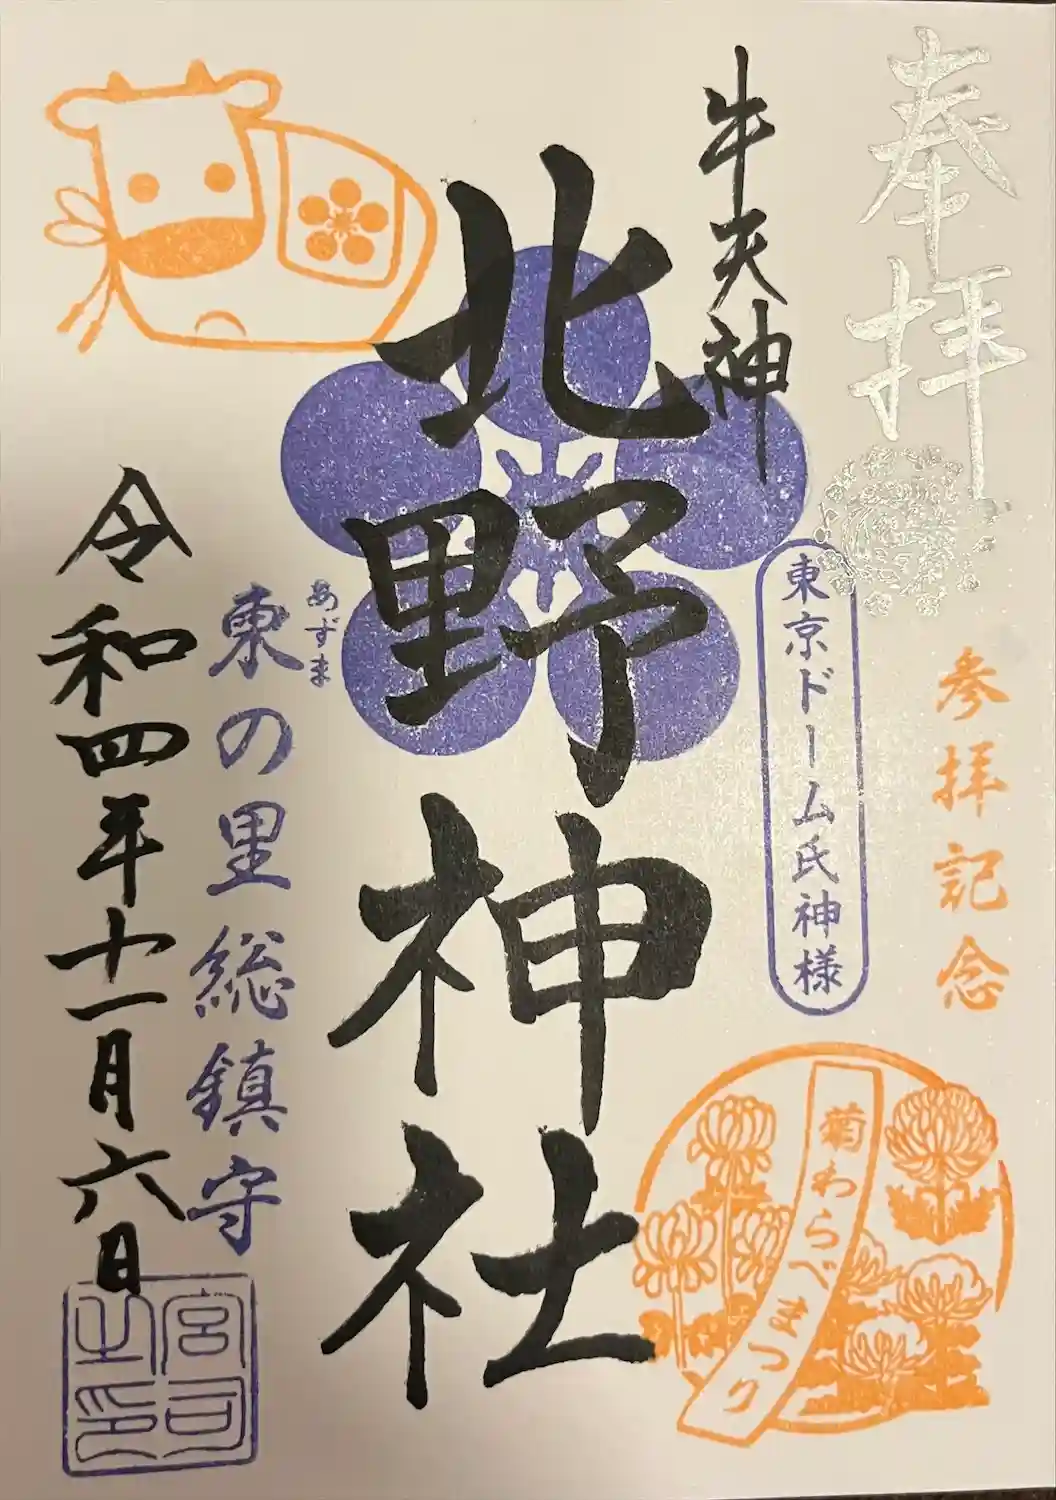 奉拝
参拝記念
菊わらべまつり
牛天神
東京ドーム氏神様
北野神社
あずま
東の里総鎮守
令和四年十一月六日
宮司之印